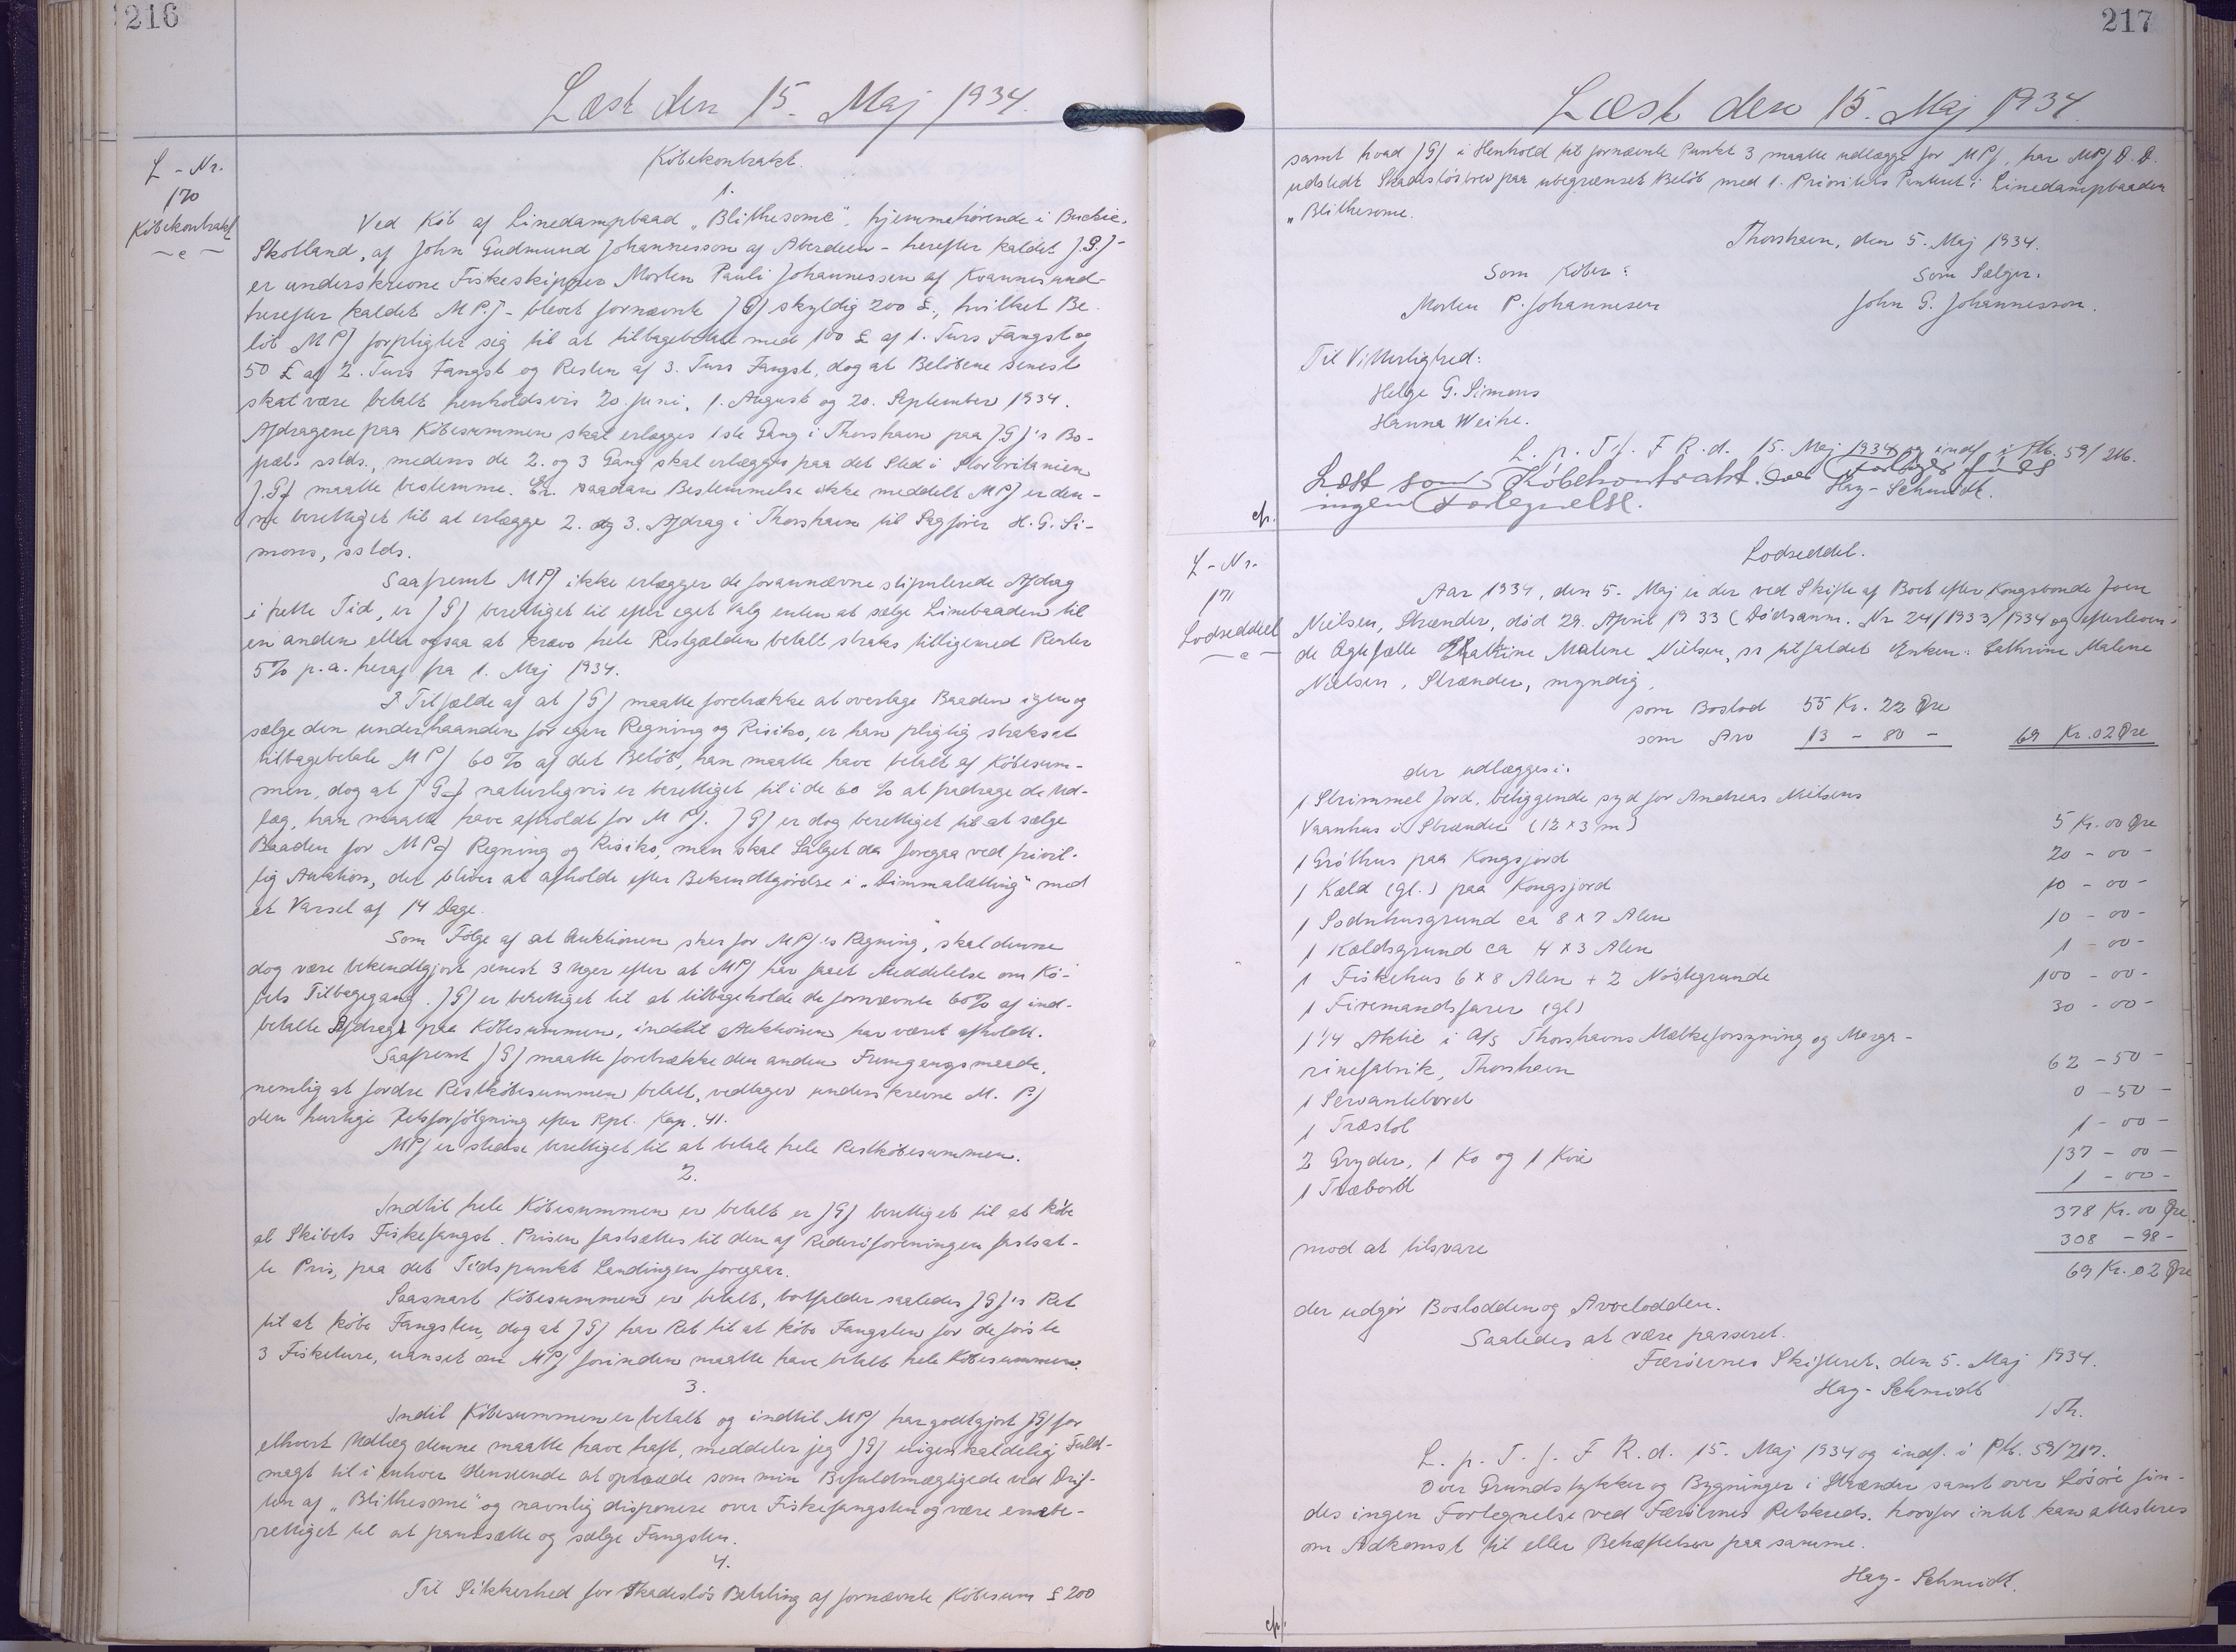 216
Læst den 15. Maj 1934.
L-Nr.
170
Købekontrakt
Købekontrakt.
1.
Ved Køb af Linedampbaad "Blithesome", hjemmehørende i Buckie,
Skotland, af John Gudmund Johannesson af Aberdeen - herefter kaldet J.G.J -
er underskrevne Fiskeskipper Morten Pauli Johannessen af Kvannesund -
herefter kaldet M P.J - blevet fornævnte JGJ skyldig 200 £., hvilket Be-
løb MPJ forpligter sig til at tilbagebetale med 100 £ af 1. Turs Fangst og
50 £ af 2. Turs Fangst og Resten af 3. Turs Fangst, dog at Beløbene senest
skal være betalt henholdsvis 20. Juni, 1. August og 20. September 1934.
Afdragene paa Købesummen skal erlægges 1ste Gang i Thorshavn paa JGJ's Bo-
pæl sstds., medens de 2. og 3 Gang skal erlægges paa det Sted i Storbritanien
J.GJ maatte bestemme. Er saadan Bestemmelse ikke meddelt MPJ er den-
ne berettiget til at erlægge 2. og 3. Afdrag i Thorshavn til Sagfører H. G. Si-
mons, sstds.
Saafremt MPJ ikke erlægger de forannævne stipulerede Afdrag
i rette Tid, er JGJ berettiget til efter eget Valg enten at sælge Linebaaden til
en anden eller ogsaa at kræve hele Restgælden betalt straks tilligemed Renter
5% p.a. heraf fra 1. Maj 1934.
I Tilfælde af at JGJ maatte foretrække at overtage Baaden igen og
sælge den underhaanden for egen Regning og Risiko, er han pligtig straks at
tilbagebetale MPJ 60% af det Beløb, han maatte have betalt af Købesum-
men, dog at JGJ naturligvis er berettiget til i de 60 % at fradrage de Ud-
læg, han maatte have afholdt for MPJ. JGJ er dog berettiget til at sælge
Baaden for MPJ Regning og Risiko, men skal Salget da foregaa ved frivil-
lig Auktion, der bliver at afholde efter Bekendtgørelse i "Dimmalætting" med
et Varsel af 14 Dage.
Som Følge af at Auktionen sker for MPJ's Regning, skal denne
dog være bekendtgjort senest 3 Uger efter at MPJ har faaet Meddelelse om Kø-
bets Tilbagegang. JGJ er berettiget til at tilbageholde de fornævnte 60% af ind-
betalte Afdrag paa Købesummen, indtil Auktionen har været afholdt.
Saafremt JGJ maatte foretrække den anden Fremgangsmaade,
nemlig at fordre Restkøbesummen betalt, vedtager underskrevne M. PJ
den hurtige Retsforfølgning efter Rpl. Kap. 41.
MPJ er stedse berettiget til at betale hele Restkøbesummen.
2.
Indtil hele Købesummen er betalt er JGJ berettiget til at købe
al Skibets Fiskefangst. Prisen fastsættes til den af Rederiforeningen fastsat-
te Pris, paa det Tidspunkt Landingen foregaar.
Saasnart Købesummen er betalt, bortfalder saaledes JGJ's Ret
til at købe Fangsten, dog at JGJ har Ret til at købe Fangsten for de første
3 Fisketure, uanset om MPJ forinden maatte have betalt hele Købesummen.
3.
Indtil Købesummen er betalt og indtil MPJ har godtgjort JGJ for
ethvert Udlæg denne maatte have haft, meddeler jeg JGJ uigenkaldelig Fuld-
magt til i enhver Henseende at optræde som min Befuldmægtigede ved Drif-
ten af "Blithesome" og navnlig disponere over Fiskefangsten og være enebe-
rettiget til at pantsætte og sælge Fangsten.
4.
Til Sikkerhed for Skadesløs Betaling af fornævnte Købesum £ 200
217
Læst den 15. Maj 1934.
samt hvad JGJ i Henhold til fornævnte Punkt 3 maatte udlægge for MPJ, har MPJ D.D.
udstedt Skadesløsbrev paa ubegrænset Beløb med 1. Prioritets Panteret i Linedampbaaden
"Blithesome.
Thorshavn, den 5. Maj 1934.
Som Køber: Som Sælger:
Morten P. Johannesen John G. Johannesson.
Til Vitterlighed:
Helge G. Simons
Hanna Weihe.
L. p. T. f. F R. d. 15. Maj 1934 og indf. i Pb. 59/216.
Læst som Købekontrakt. Over Fartøjer føres
ingen Fortegnelse. Hay-Schmidt.
cfr.
L-Nr.
171
Lodseddel
Lodseddel.
Aar 1934, den 5. Maj er der ved Skifte af Boet efter Kongsbonde Joen
Nielsen, Strænder, død 29. April 1933 (Dødsanm. Nr 24/1933/1934 og efterleven-
de Ægtefælle Cathrine Malene Nielsen, er tilfaldet Enken: Cathrine Malene
Nielsen, Strænder, myndig,
som Boslod 55 Kr. 22 Øre
som Arv 13 - 80 - 69 Kr. 02 Øre
der udlægges i:
1 Strimmel Jord, beliggende syd for Andreas Nielsens
Vaanhus i Strænder (12 x 3 m) 5 Kr. 00 Øre
1 Gróthus paa Kongsjord 20 - 00 -
1 Kæld (gl.) paa Kongsjord 10 - 00 -
1 Sodnhusgrund ca 8 x 7 Alen 10 - 00 -
1 Kældsgrund ca 4 x 3 Alen 1 - 00 -
1 Fiskehus 6 x 8 Alen + 2 Nøstegrunde 100 - 00 -
1 Firemandsfarer (gl) 30 - 00 -
1 1/4 Aktie i A/S Thorshavns Mælkeforsyning og Marga-
rinefabrik, Thorshavn 62 - 50 -
1 Servantebord 0 - 50 -
1 Træstol 1 - 00 -
2 Gryder, 1 Ko og 1 Kvie 137 - 00 -
1 Træbord 1 - 00 -
378 Kr. 00 Øre.
mod at tilsvare 308 - 98 -
69 Kr. 02 Øre
der udgør Boslodden og Arvelodden.
Saaledes at være passeret.
Færøernes Skifteret, den 5. Maj 1934.
Hay-Schmidt
/Th.
L. p. T. f. F R. d. 15. Maj 1934 og indf. i Pb. 59/217.
Over Grundstykker og Bygninger i Strænder samt over Løsøre fin-
des ingen Fortegnelse ved Færøernes Retskreds, hvorfor intet kan attesteres
om Adkomst til eller Behæftelser paa samme.
Hay-Schmidt.
cfr.